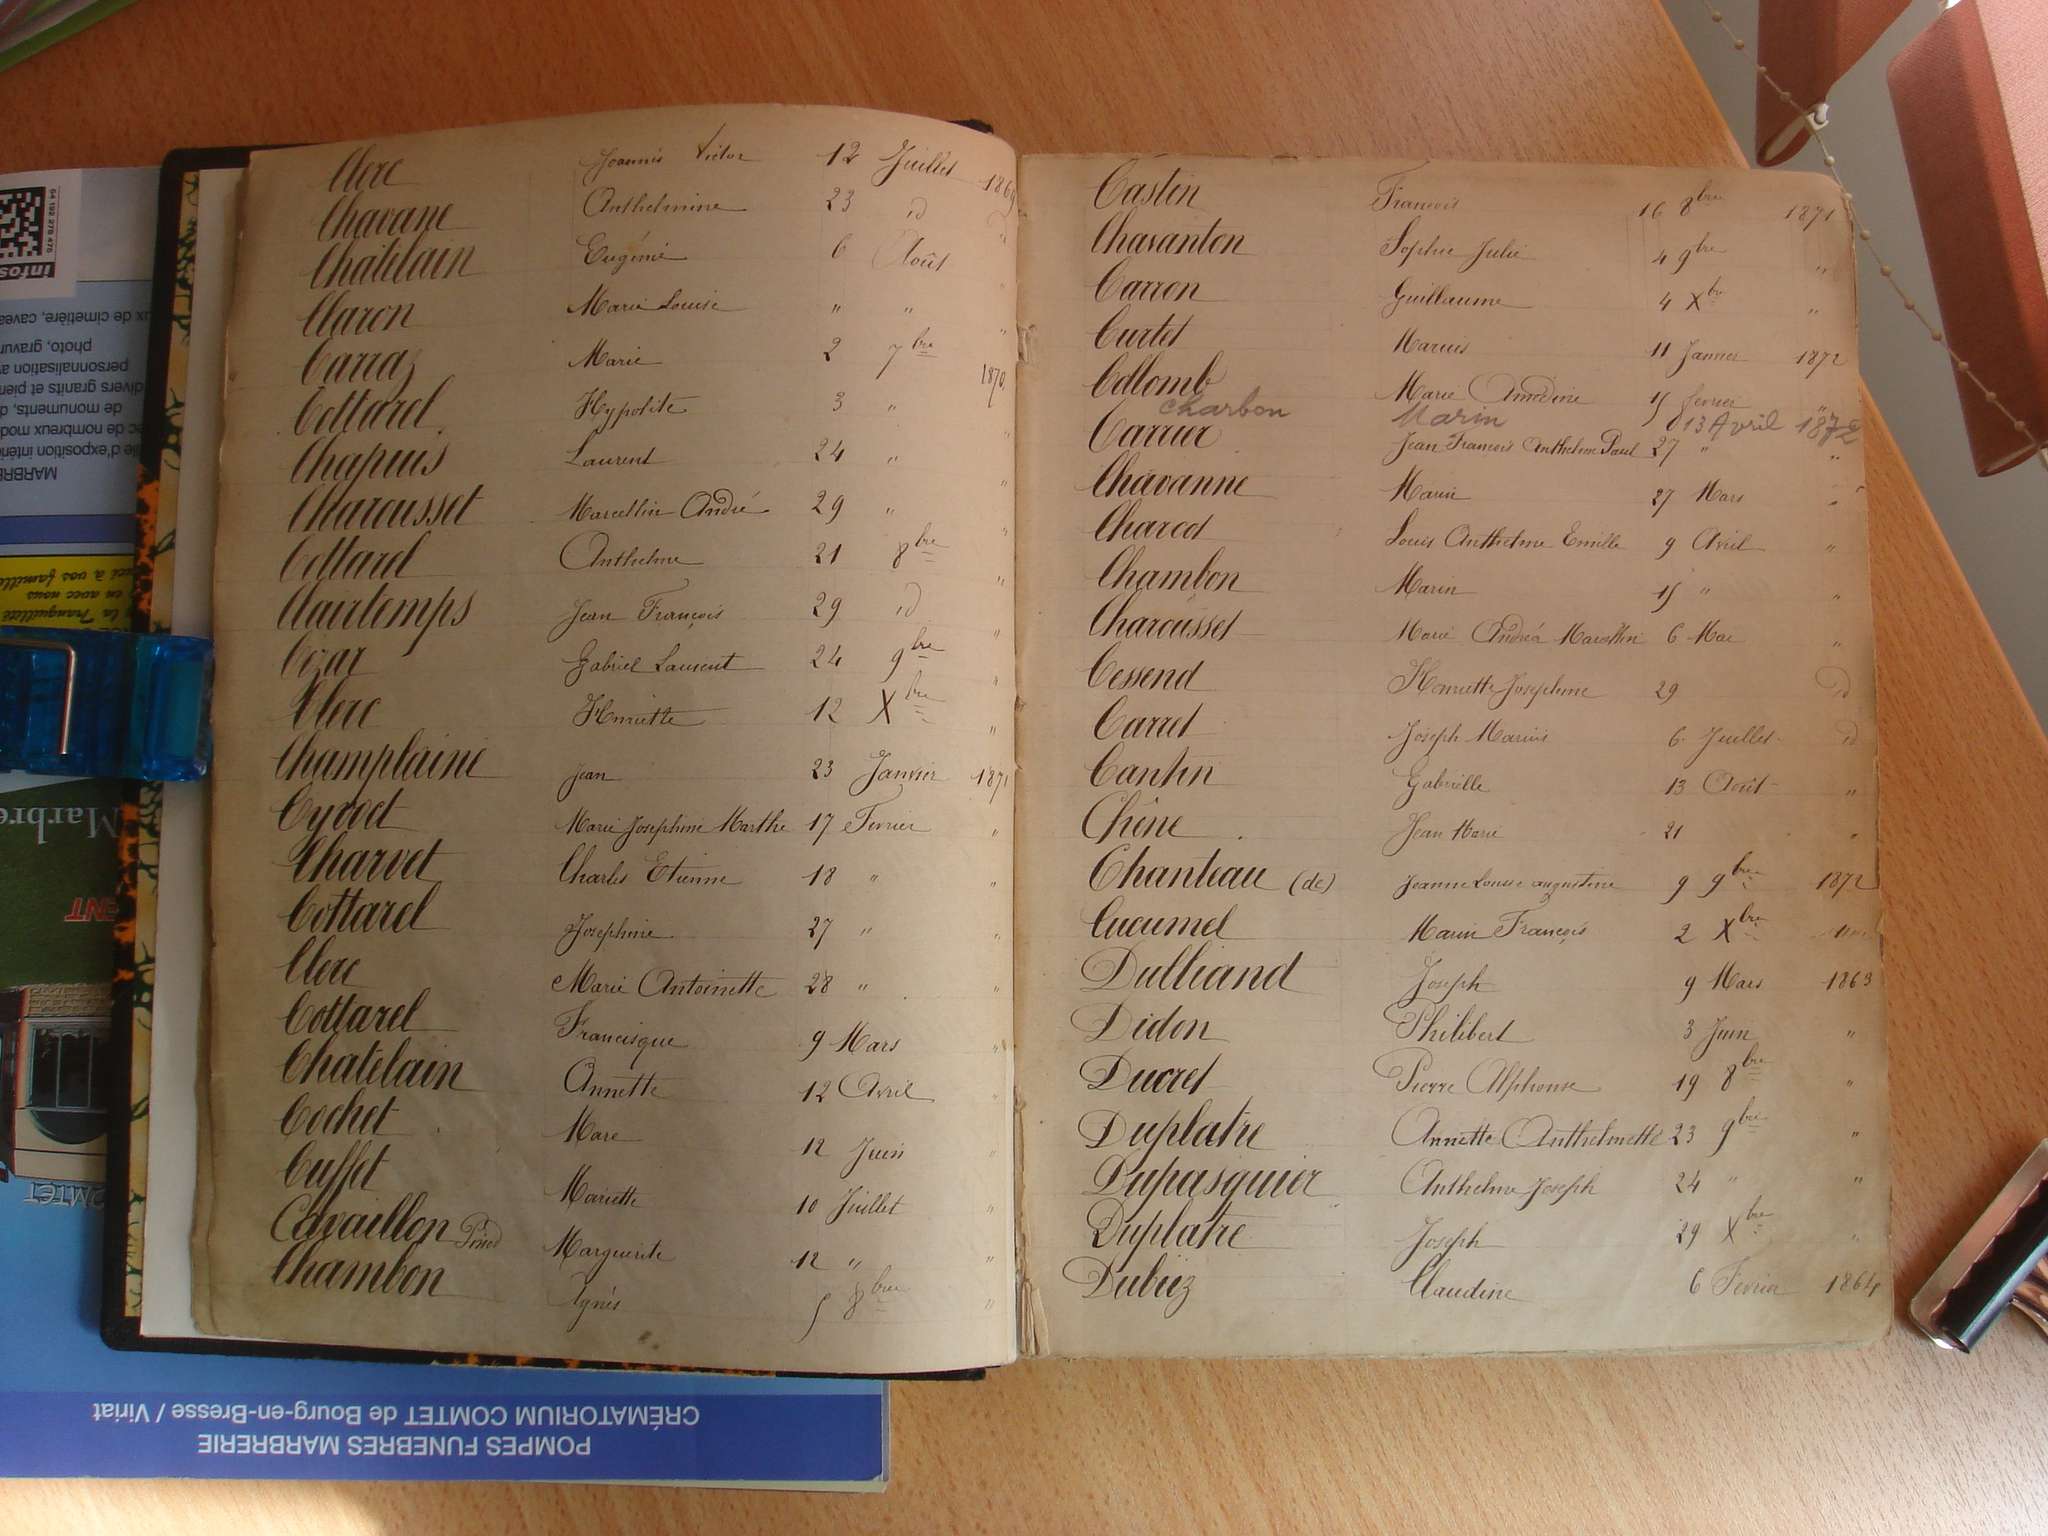 Clerc Joannis Victor 12 Juillet 1869
Chavane Anthelmine 23 id "
Chatelain Eugénie 6 Août "
Claron Marie Louise " " "
Carraz Marie 2 7bre 1870
Cottarel Hypolite 3 " "
Chapuis Laurent 24 " "
Charcusset Marcellin André 29 " "
Cottarel Anthelme 21 8bre "
Clairtemps Jean François 29 id "
Cizar Gabriel Laurent 24 9bre "
Clerc Henriette 12 Xbre "
Champlaine Jean 23 Janvier 1871
Cyvoct Marie Josephine Marthe 17 Fevrier "
Charvet Charles Etienne 18 " "
Cottarel Josephine 27 " "
Clerc Marie Antoinette 28 " "
Cottarel Francisque 9 Mars "
Chatelain Annette 12 Avril "
Cochet Marc 12 Juin "
Cuffet Mariette 10 Juillet "
Cavaillon Marguerite 12 " "
Chambon Agnés 5 8bre "
Castin Francois 16 8bre 1871
Chavanton Sophie Julie 4 9bre "
Carron Guillaume 4 Xbre "
Curtet Marius 11 Janvier 1872
Collomb Marie Claudine 15 fevrier "
Charbon Marin 13 Avril 1872
Carrier Jean François Anthelme Paul 27 " "
Chavanne Marin 27 Mars "
Charcot Louis Anthelme Emille 9 Avril "
Chambon Marin 15 " "
Charcusset Marie Andréa Marcellin 6 Mai "
Cessend Henriette Josephine 29 id
Carret Joseph Marius 6 Juillet id
Cantin Gabrielle 13 Août "
Chêne Jean Marie 21 "
Chanteau (de) Jeanne Louise augustine 9 9bre 1872
Cucumel Marin François 2 Xbre
Dulliand Joseph 9 Mars 1863
Didon Philibert 3 Juin "
Ducret Pierre Alphonse 19 8bre "
Duplatre Annette Anthelmette 23 9bre "
Dupasquier Anthelme Joseph 24 " "
Duplatre Joseph 29 Xbre "
Dubiez Claudine 6 Fevrier 1864
64 192 278 475
infos
ux de cimetière, cavea
photo, gravur
personnalisation av
divers granits et pierr
de monuments, d
ec de nombreux mod
le d'exposition intérie
MARBRE
la Tranquillité
en avec nous
à vos famille
Marbre
ENT
OMTET
CRÉMATORIUM COMTET de Bourg-en-Bresse / Viriat
POMPES FUNEBRES MARBRERIE